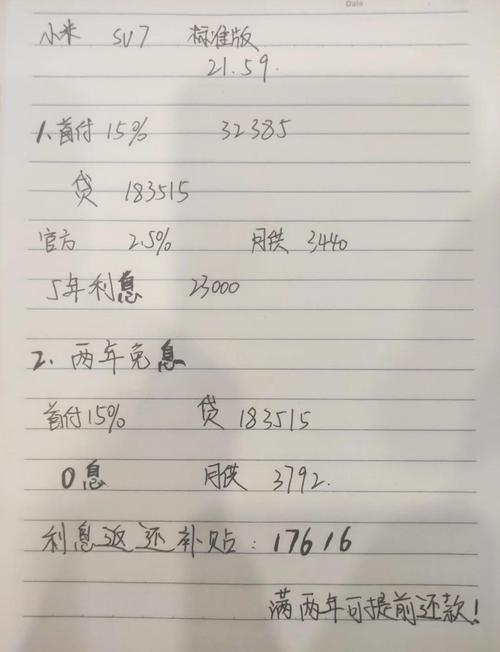 Date
小米 SU7 标准版
21.59.
1.首付15% 32385
贷 183515
官方 2.5% 月供 3440
5年利息 23000
2. 两年免息
首付15% 贷 183515
0息 月供 3792.
利息返还补贴：17616
满两年可提前还款！